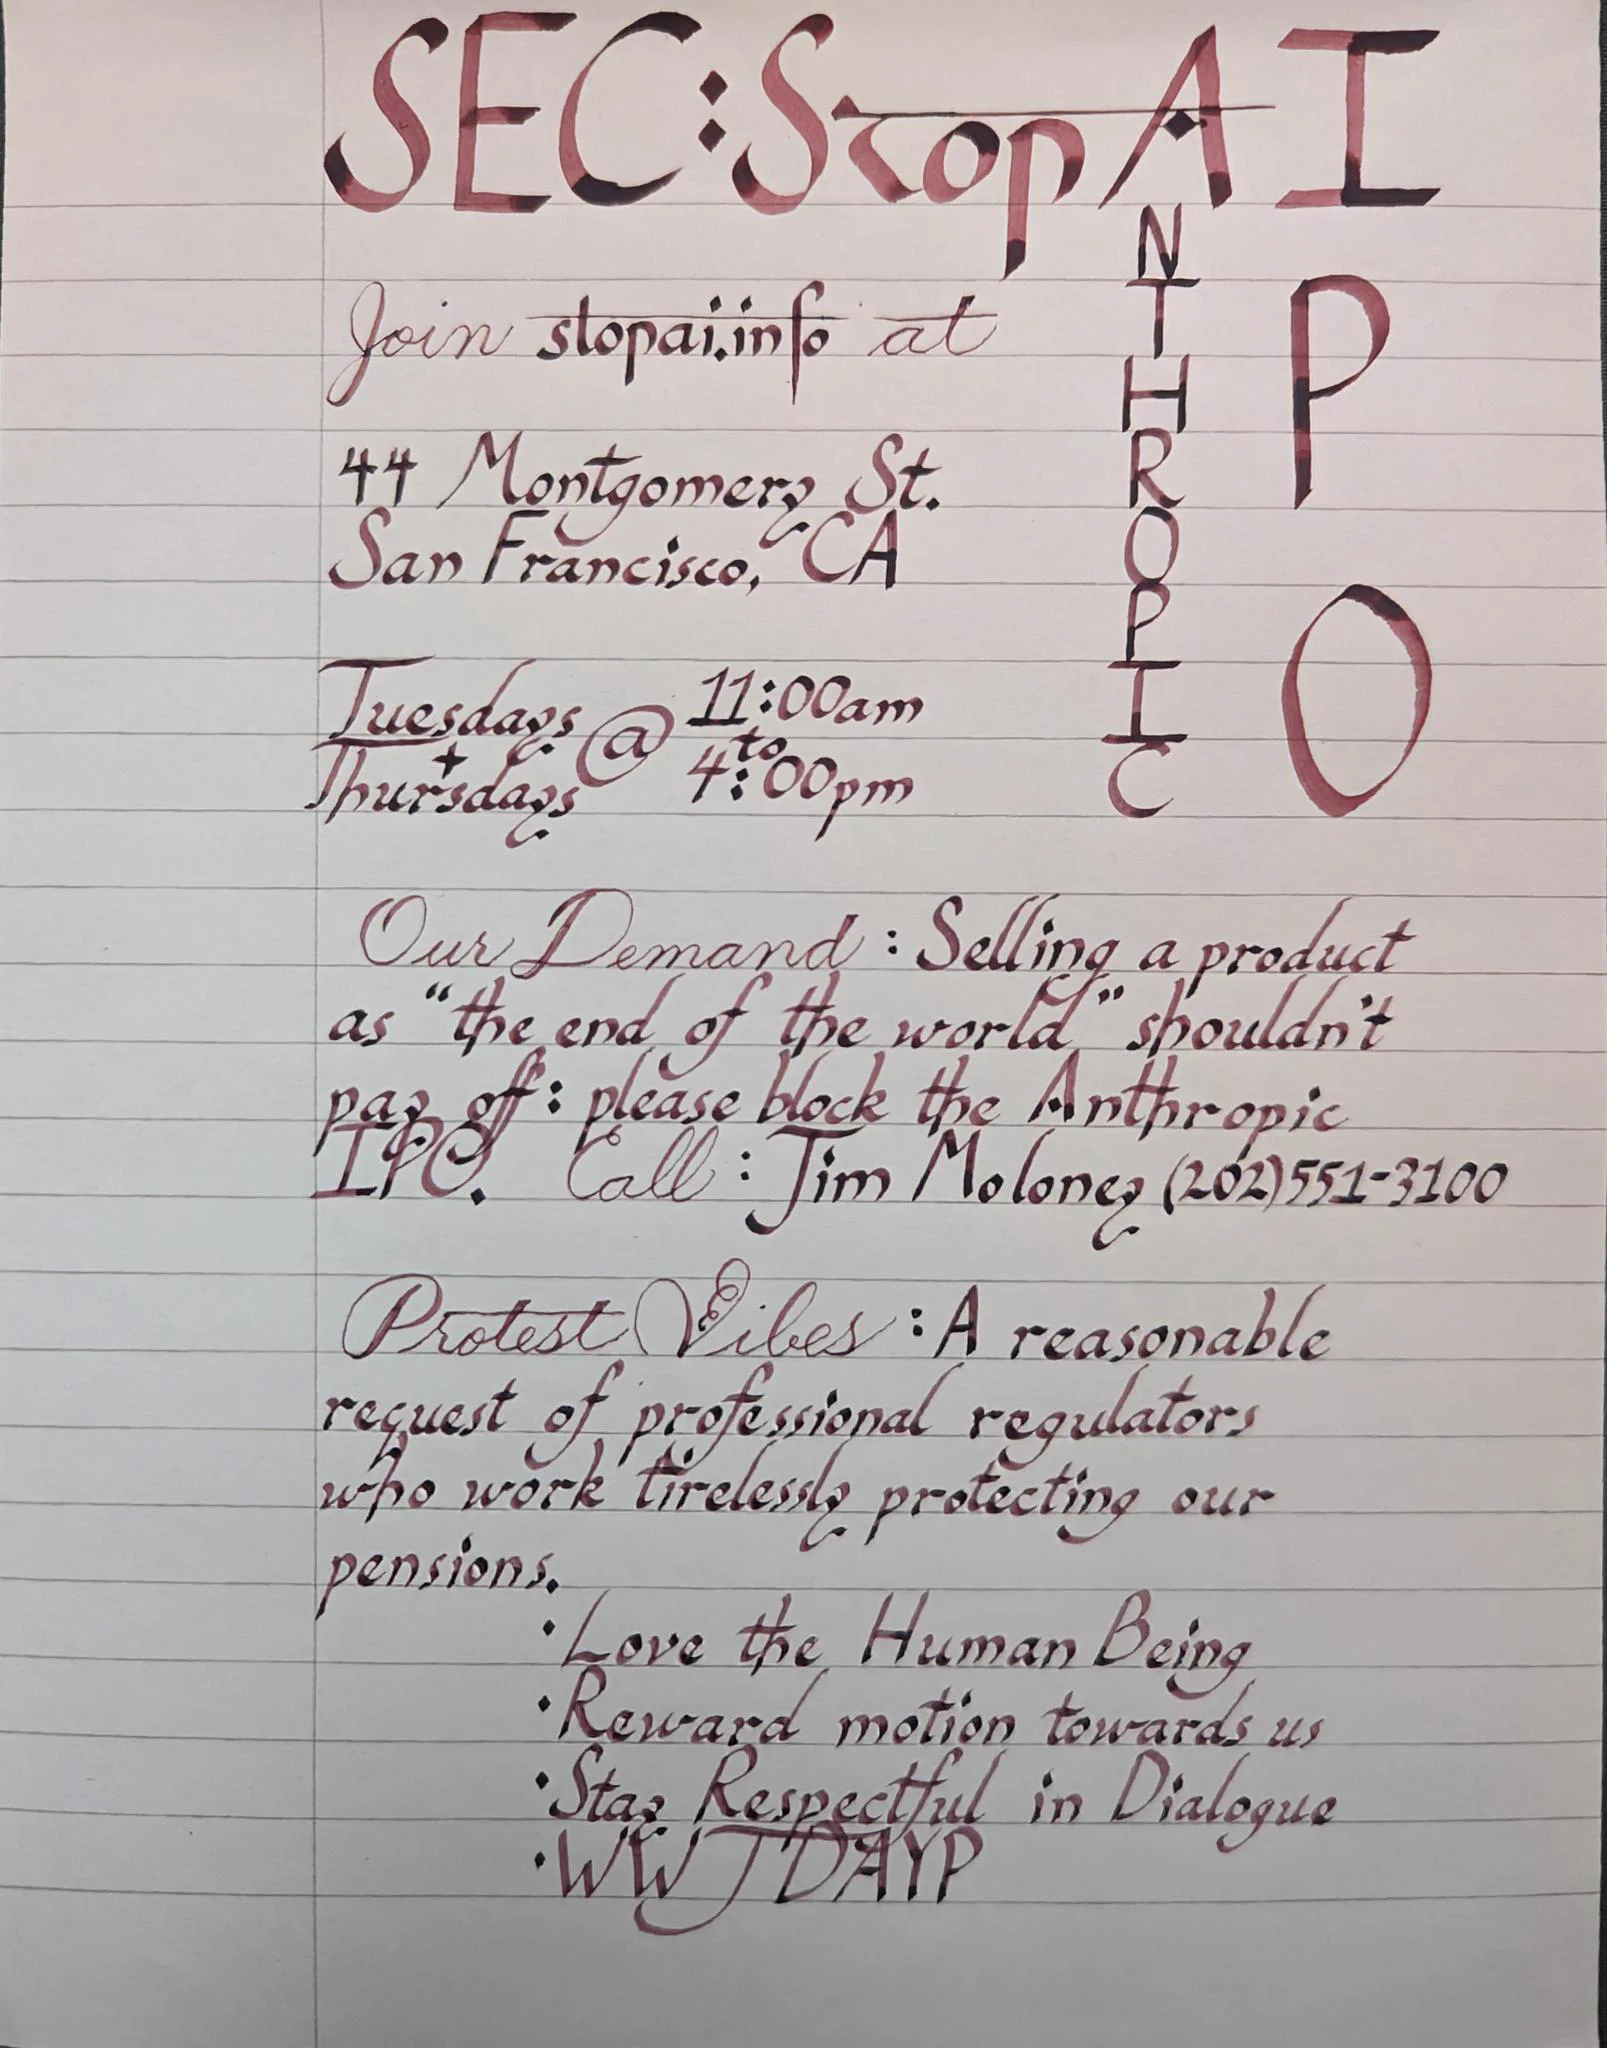 SEC: Stop AI
ANTHROPIC
IPO
Join stopai.info at
44 Montgomery St.
San Francisco, CA
Tuesdays
+
Thursdays
@
11:00am
to
4:00pm
Our Demand: Selling a product
as "the end of the world" shouldn't
pay off: please block the Anthropic
IPO. Call: Jim Moloney (202)551-3100
Protest Vibes: A reasonable
request of professional regulators
who work tirelessly protecting our
pensions.
· Love the Human Being
· Reward motion towards us
· Stay Respectful in Dialogue
· WWJDAYP